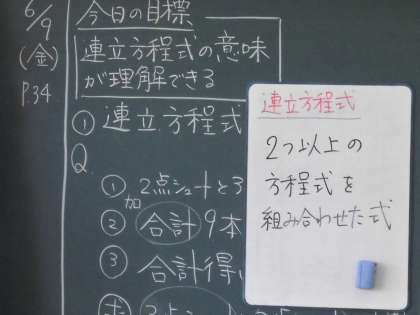 6/9
(金)
P.34
今日の目標
連立方程式の意味
が理解できる
① 連立方程式
Q.
① 2点シュートと3
加
② 合計9本
③ 合計得
連立方程式
2つ以上の
方程式を
組み合わせた式